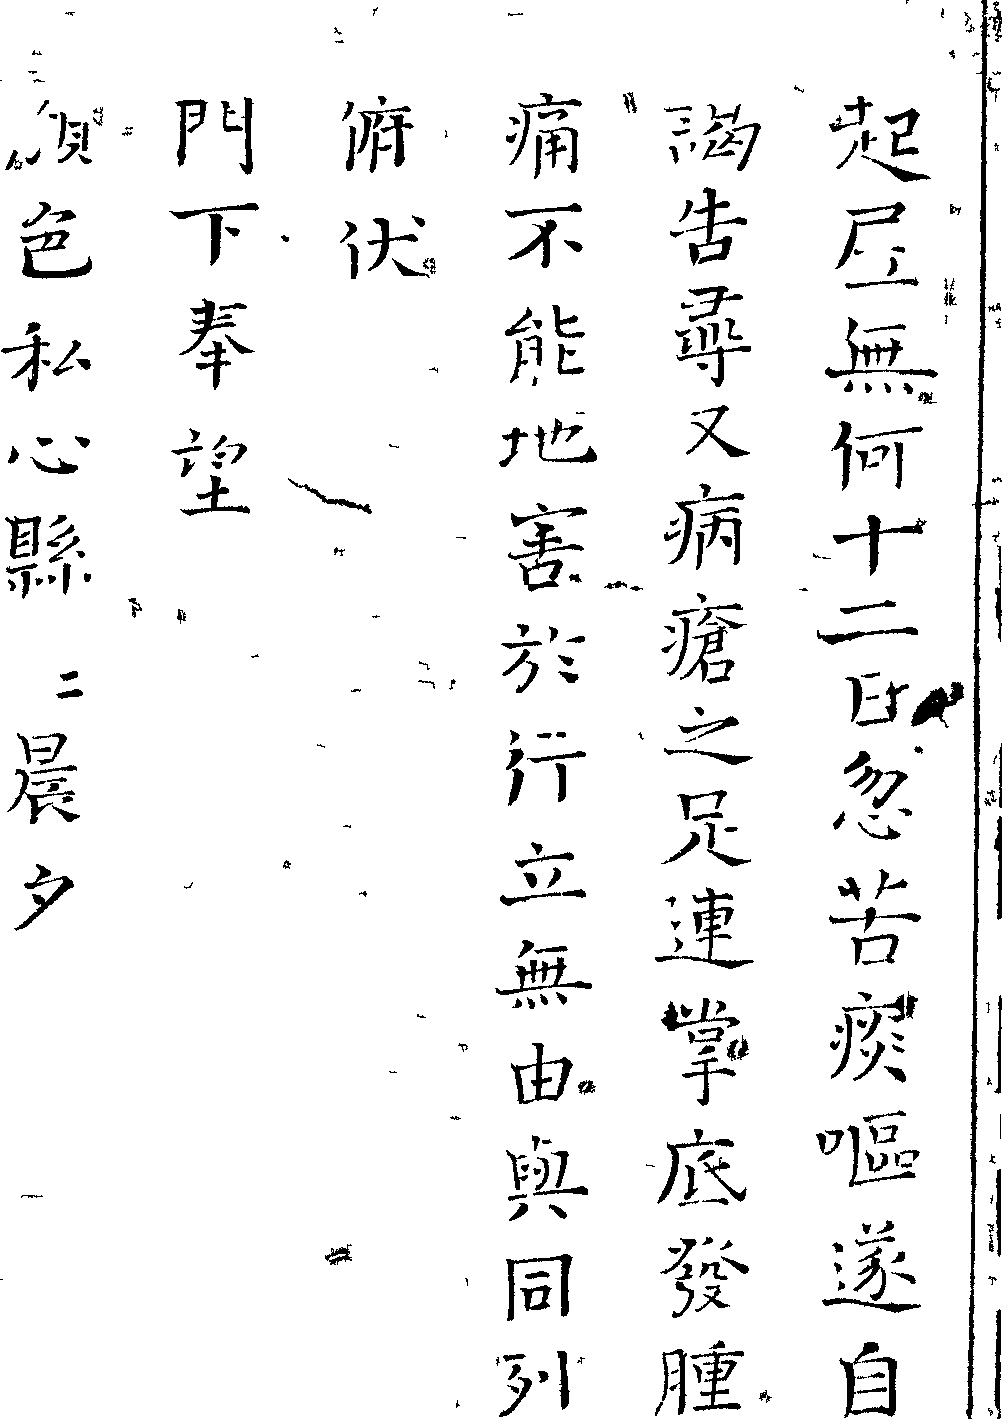 起㞐無何十二日忽苦痰嘔遂自
謁告尋又病瘡之足連掌底發腫
痛不能地害於行立無由與同列
俯伏
門下奉望
色私心縣〻晨夕